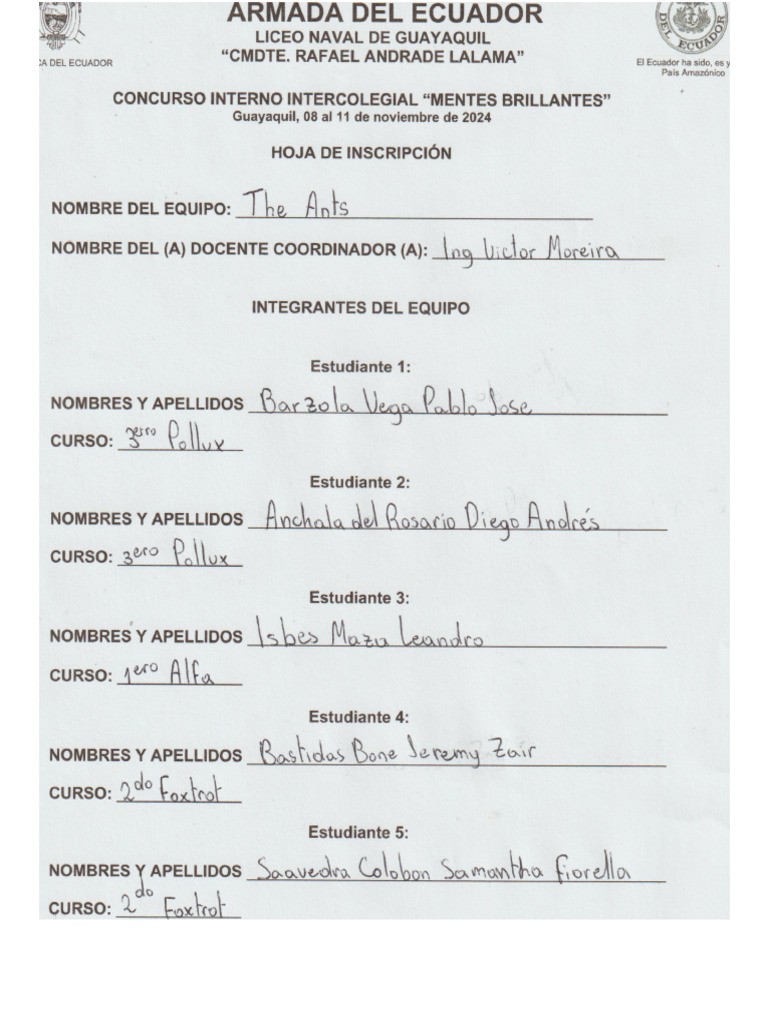 ARMADA DEL ECUADOR
LICEO NAVAL DE GUAYAQUIL
“CMDTE. RAFAEL ANDRADE LALAMA”
CA DEL ECUADOR
DEL ECUADOR
El Ecuador ha sido, es y
País Amazónico
CONCURSO INTERNO INTERCOLEGIAL “MENTES BRILLANTES”
Guayaquil, 08 al 11 de noviembre de 2024
HOJA DE INSCRIPCIÓN
NOMBRE DEL EQUIPO: The Ants
NOMBRE DEL (A) DOCENTE COORDINADOR (A): Ing Victor Moreira
INTEGRANTES DEL EQUIPO
Estudiante 1:
NOMBRES Y APELLIDOS Barzola Vega Pablo Jose
CURSO: 3ero Pollux
Estudiante 2:
NOMBRES Y APELLIDOS Anchala del Rosario Diego Andrés
CURSO: 3ero Pollux
Estudiante 3:
NOMBRES Y APELLIDOS Isbes Leandro
CURSO: 1ero Alfa
Estudiante 4:
NOMBRES Y APELLIDOS Bastidas Bone Jeremy Zair
CURSO: 2do Foxtrot
Estudiante 5:
NOMBRES Y APELLIDOS Saavedra Colobon Samantha Fiorella
CURSO: 2do Foxtrot